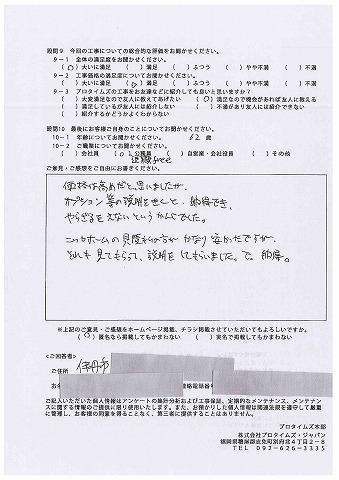 設問9 今回の工事についての総合的な評価をお聞かせください。
9-1 全体の満足度をお聞かせください。
(○)大いに満足 ( )満足 ( )ふつう ( )やや不満 ( )不満
9-2 工事価格の満足度についてお聞かせください。
( )大いに満足 (○)満足 ( )ふつう ( )やや不満 ( )不満
9-3 プロタイムズの工事をお友達などに紹介しても良いと思いますか?
( )大変満足なので友人に教えてあげたい (○)満足なので機会があれば友人に教える
( )満足しているが友人には紹介しない ( )不満があり友人を紹介できない
( )紹介するかどうかよくわからない
設問10 最後にお客様ご自身のことについてお聞かせください。
10-1 年齢についてお聞かせください。 62 歳
10-2 ご職業についてお聞かせください。
( )会社員 (○)公務員 ( )自営業・会社役員 ( )その他
退職
ご意見・ご感想をご自由にお書きください。
価格は高めだと思いましたが、
オプション等の説明をきくと、納得でき、
やらざるをえないというかんじでした。
ニッカホームの見積もりの方が かなり安かったですが、
それも見てもらって、説明をしてもらいました。で、納得。
※上記のご意見・ご感想をホームページ掲載、チラシ掲載させていただいてもよろしいですか。
(○)匿名なら掲載してもかまわない ( )実名で掲載してもかまわない
<ご回答者>
ご住所 伊丹市
お名
連絡電話番号
ご記入いただいた個人情報はアンケートの集計分析および工事保証、定期的なメンテナンス、メンテナンス
に関する情報のご提供に限り使用いたします。また、お預かりした個人情報は関連法規を遵守して厳重
に管理し、お客様の同意を得ることなく、第三者に提供することはありません。
プロタイムズ本部
株式会社プロタイムズ・ジャパン
福岡県糟屋郡志免町別府北4丁目2-8
TEL 092-626-3335